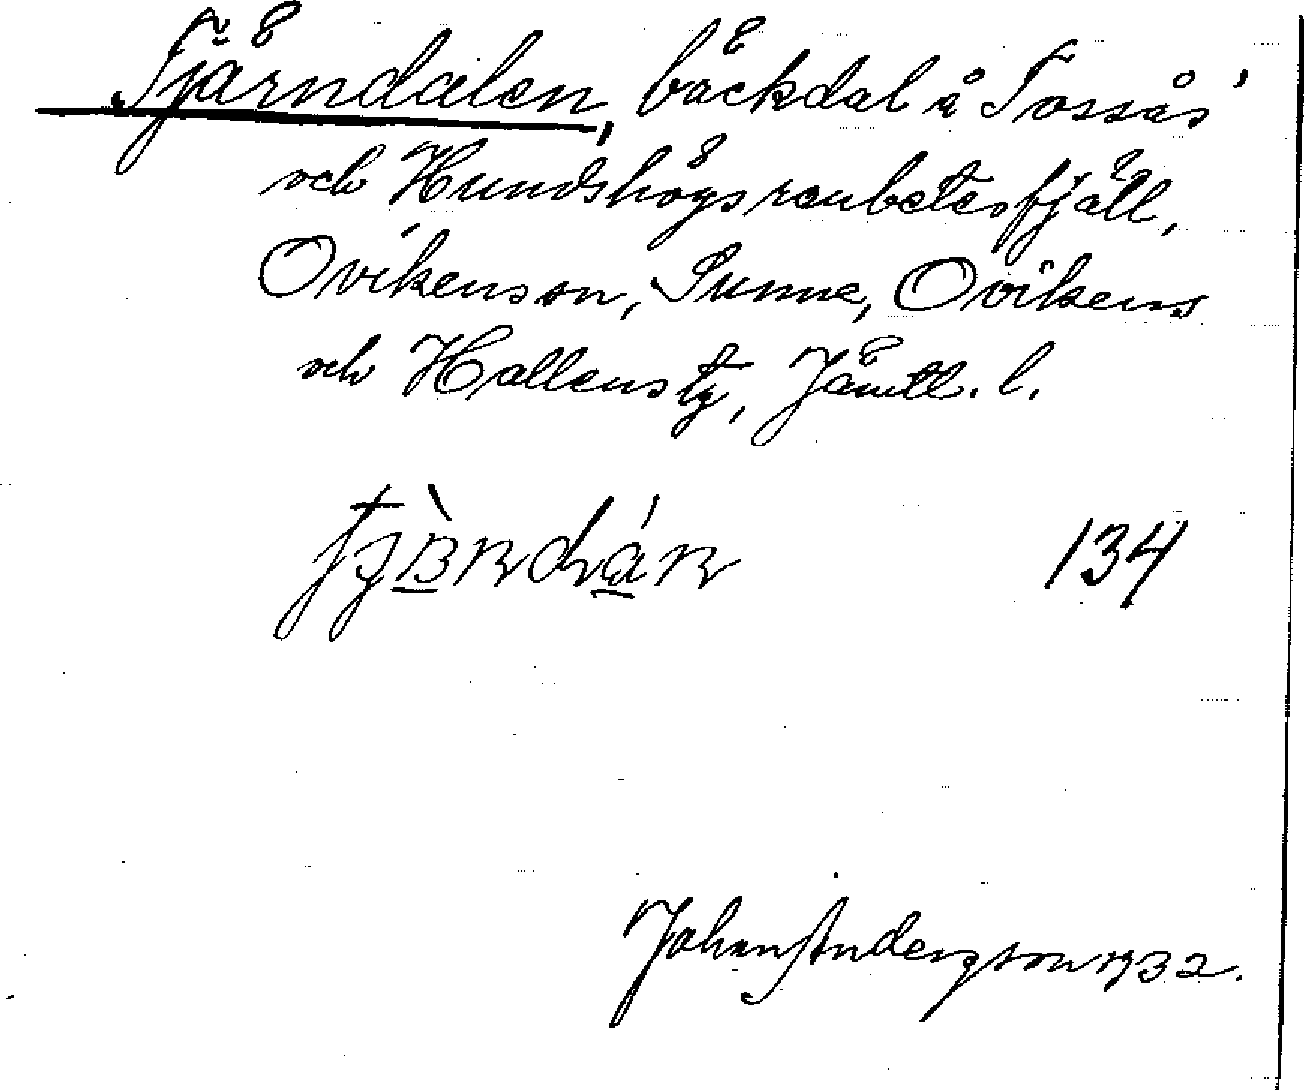 Tjärndalen, bäckdal å Tossås'
och Hundshögs renbetesfjäll,
Ovikens sn, Sunne, Ovikens
och Hallens tg, Jämtl. l.
134
Johan Andersson 1932.